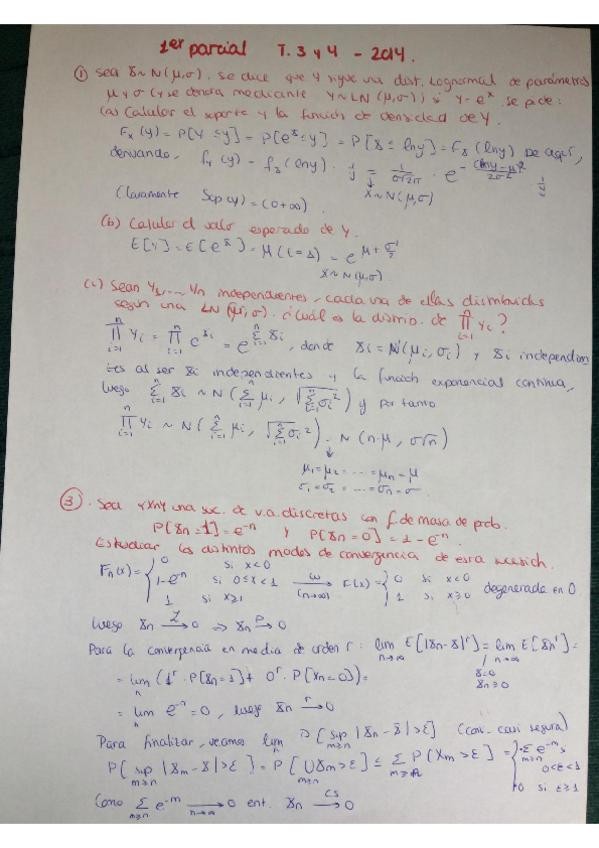 1er parcial T. 3 y 4 - 2014.
① Sea X~N(μ,σ). Se dice que Y sigue una dist. Lognormal de parámetros
μ y σ (y se denota mediante Y~LN(μ,σ)) si Y=e^X. Se pide:
(a) Calcular el soporte y la función de densidad de Y.
F_Y(y) = P[Y≤y] = P[e^X≤y] = P[X≤lny] = F_X(lny) De aquí,
derivando, f_Y(y) = f_X(lny) · 1/y = 1/(σ√2π) · e^-(lny-μ)²/2σ² · 1/y
X~N(μ,σ)
(Claramente Sop(y)=(0,+∞)
(b) Calcular el valor esperado de Y.
E[Y]=E[e^X]=M(t=1) = e^(μ+σ²/2)
X~N(μ,σ)
(c) Sean Y₁,...,Yn independientes, cada una de ellas distribuidas
según una LN(μ,σ). ¿Cuál es la distrib. de ∏_{i=1}^n Yi?
∏_{i=1}^n Yi = ∏_{i=1}^n e^{Xi} = e^{∑_{i=1}^n Xi}, donde Xi=N(μi,σi) y Xi independien
tes al ser Xi independientes y la función exponencial continua,
luego ∑_{i=1}^n Xi ~ N(∑_{i=1}^n μi, √(∑_{i=1}^n σi²)) y por tanto
∏_{i=1}^n Yi ~ N(∑_{i=1}^n μi, √(∑_{i=1}^n σi²)) = N(n·μ, σ√n)
μ₁=μ₂=...=μn=μ
σ₁=σ₂=...=σn=σ
③. Sea {Xn} una suc. de v.a. discretas con f. de masa de prob.
P[Xn=1]=e^-n y P[Xn=0]=1-e^-n.
Estudiar los distintos modos de convergencia de esta sucesión.
Fn(x)= { 0 si x<0; 1-e^-n si 0≤x<1; 1 si x≥1 —ω→ (n→∞) F(x)= { 0 si x<0; 1 si x≥0 degenerada en 0
luego Xn —L→ 0 ⇒ Xn —P→ 0
Para la convergencia en media de orden r: lim_{n→∞} E[|Xn-X|^r] = lim_{n→∞} E[Xn^r] =
X=0
Xn≥0
= lim_n (1^r · P[Xn=1] + 0^r · P[Xn=0]) =
= lim_n e^-n = 0, luego Xn —r→ 0
Para finalizar, veamos lim_n P[sup_{m≥n} |Xn-X|>ε] (conv. casi segura)
P[sup_{m≥n} |Xm-X|>ε] = P[⋃_{m≥n} Xm>ε] ≤ ∑_{m≥n} P(Xm>ε) = { ∑_{m≥n} e^-m si 0<ε<1; 0 si ε≥1
Como ∑_{m≥n} e^-m —(n→∞)→ 0 ent. Xn —CS→ 0